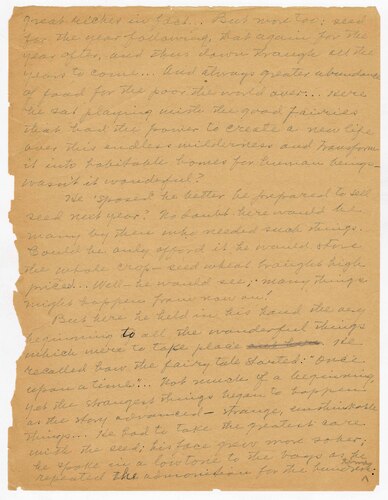 Great riches in fact... But more too: seed
for the year following, that again for the
year after, and thus down through all the
years to come... And always greater abundance
of food for the poor the world over... Here
he sat playing with the good fairies
that had the power to create a new life
over this endless wilderness and transform
it into habitable homes for human beings
wasn't it wonderful?
He 'sposed he better be prepared to sell
seed next year? No doubt there would be
many by then who needed such things.
Could he only afford it he would store
the whole crop— seed wheat brought high
prices... Well— he would see; many things
might happen from now on!
But here he held in his hand the very
beginning to all the wonderful things
which were to take place He
recalled how the fairytale started: "Once
upon a time"... Not much of a beginning,
yet the strangest things began to happen
as the story advanced— strange, unthinkable
things... He had to take the greatest care
with the seed; his face grew more sober;
he spoke in a low tone to the boys as he
repeated the admonision for the hundreth